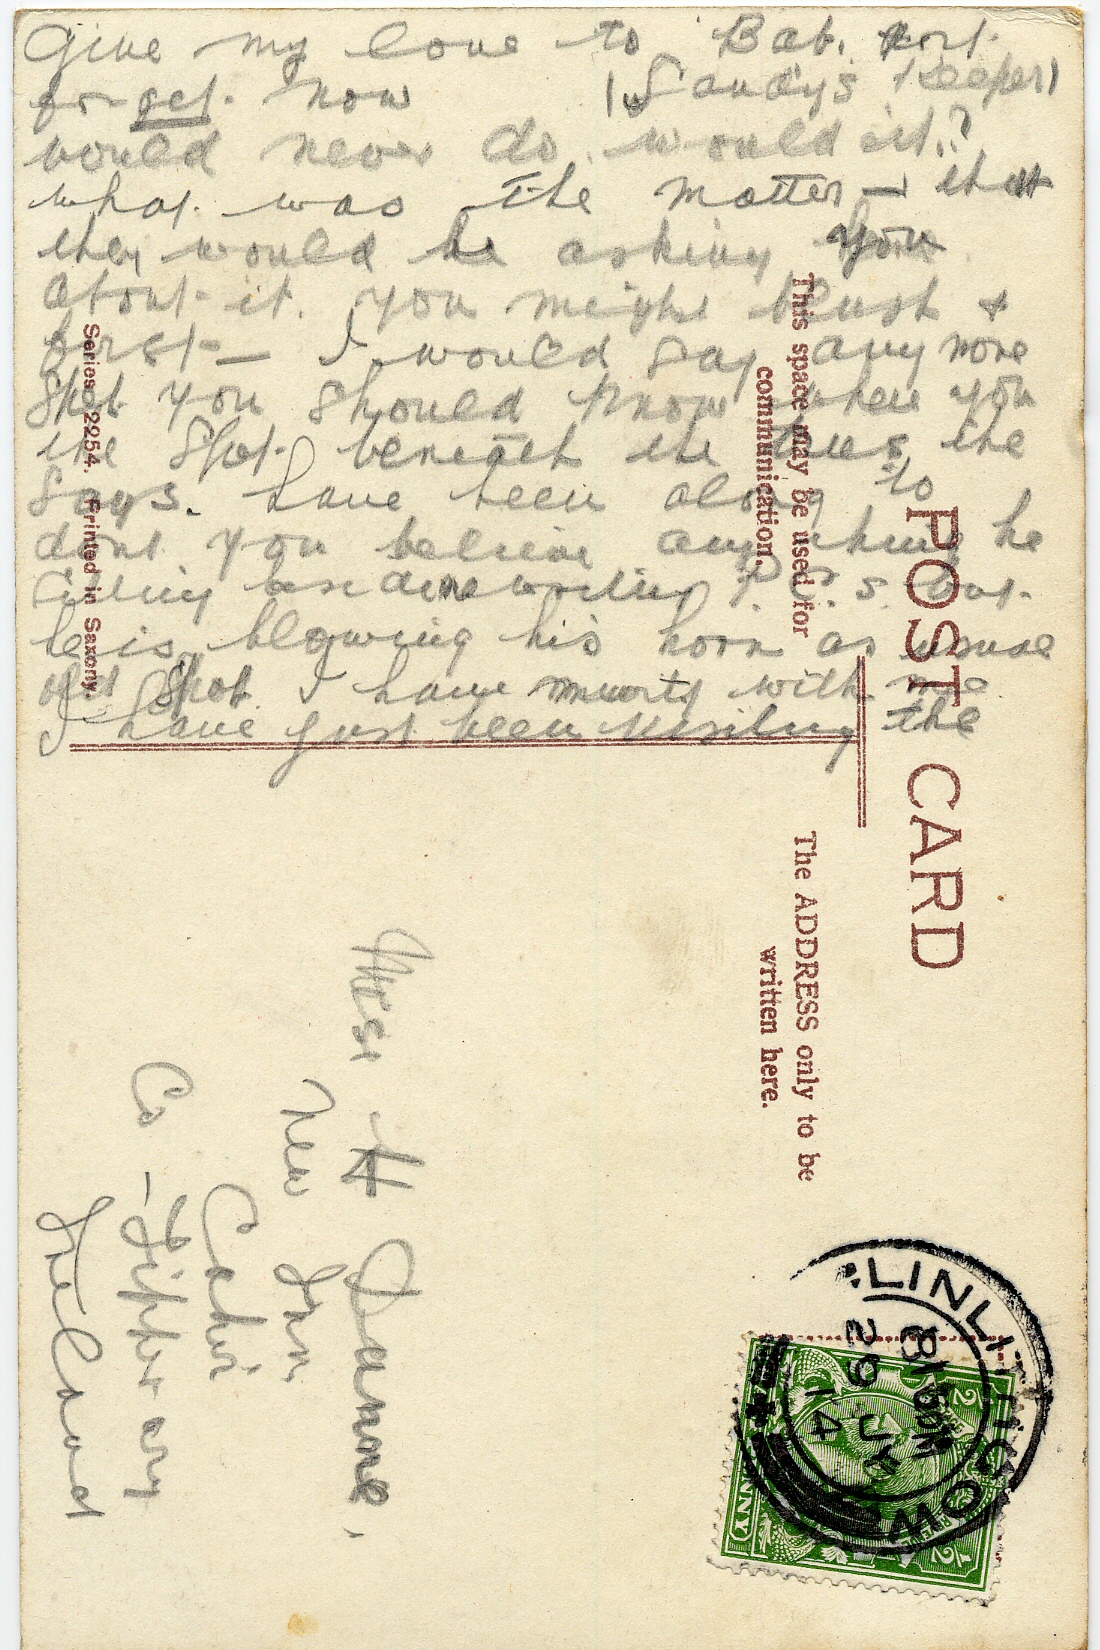 Give my love to Bab. dont
for get. now (Sandy's Keeper)
would never do, would it.?
what was the matter — that
they would be asking you
about it. you might blush &
first — I would say any more
Spot you should know when you
the Spot. beneath the trees the
says. have been along to
dont you believe anything he
writing P.C.s but.
he is blowing his horn as usual
old Spot. I have with me
I have just been visiting the
POST CARD
This space may be used for
communication.
The ADDRESS only to be
written here.
Series 2254. Printed in Saxony.
Miss A
New Inn.
Cahir
Co - Tipperary
Ireland
LINLITHGOW
29 JY
14